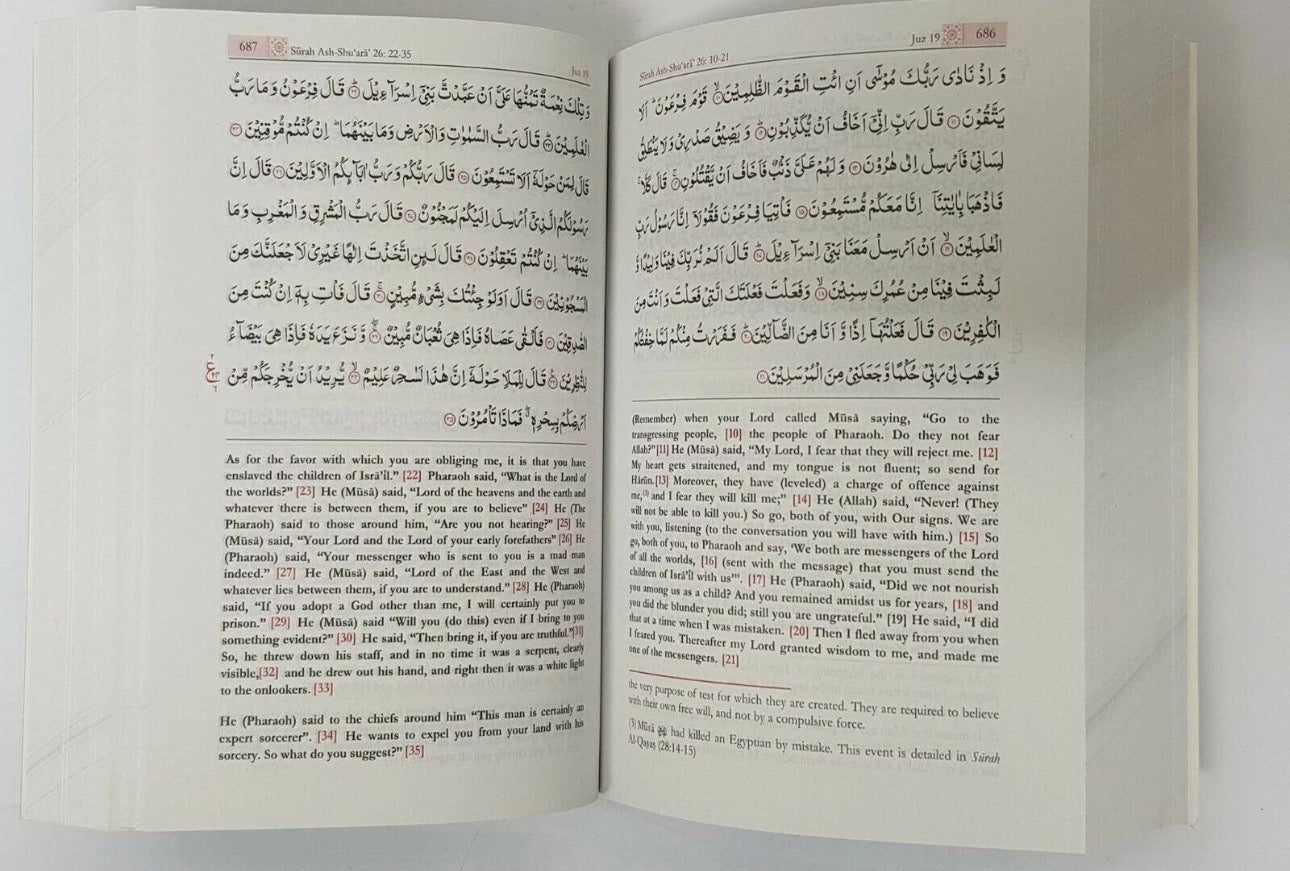 Sūrah Ash-Shu‘arā’ 26: 10-21
Juz 19
686
وَ اِذْ نَادٰى رَبُّكَ مُوْسٰٓى اَنِ ائْتِ الْقَوْمَ الظّٰلِمِيْنَ ۙ﴿۱۰﴾ قَوْمَ فِرْعَوْنَ ؕ اَلَا
يَتَّقُوْنَ ﴿۱۱﴾ قَالَ رَبِّ اِنِّىْۤ اَخَافُ اَنْ يُّكَذِّبُوْنِ ؕ﴿۱۲﴾ وَ يَضِيْقُ صَدْرِىْ وَلَا يَنْطَلِقُ
لِسَانِىْ فَاَرْسِلْ اِلٰى هٰرُوْنَ ﴿۱۳﴾ وَ لَهُمْ عَلَىَّ ذَنْۢبٌ فَاَخَافُ اَنْ يَّقْتُلُوْنِ ۚ﴿۱۴﴾ قَالَ كَلَّا ۚ
فَاذْهَبَا بِاٰيٰتِنَاۤ اِنَّا مَعَكُمْ مُّسْتَمِعُوْنَ ﴿۱۵﴾ فَاْتِيَا فِرْعَوْنَ فَقُوْلَاۤ اِنَّا رَسُوْلُ رَبِّ
الْعٰلَمِيْنَ ۙ﴿۱۶﴾ اَنْ اَرْسِلْ مَعَنَا بَنِىْۤ اِسْرَآءِيْلَ ؕ﴿۱۷﴾ قَالَ اَلَمْ نُرَبِّكَ فِيْنَا وَلِيْدًا وَّ
لَبِثْتَ فِيْنَا مِنْ عُمُرِكَ سِنِيْنَ ۙ﴿۱۸﴾ وَ فَعَلْتَ فَعْلَتَكَ الَّتِىْ فَعَلْتَ وَ اَنْتَ مِنَ
الْكٰفِرِيْنَ ﴿۱۹﴾ قَالَ فَعَلْتُهَاۤ اِذًا وَّ اَنَا مِنَ الضَّآلِّيْنَ ؕ﴿۲۰﴾ فَفَرَرْتُ مِنْكُمْ لَمَّا خِفْتُكُمْ
فَوَهَبَ لِىْ رَبِّىْ حُكْمًا وَّ جَعَلَنِىْ مِنَ الْمُرْسَلِيْنَ ﴿۲۱﴾
(Remember) when your Lord called Mūsā saying, “Go to the
transgressing people, [10] the people of Pharaoh. Do they not fear
Allah?”[11] He (Mūsā) said, “My Lord, I fear that they will reject me. [12]
My heart gets straitened, and my tongue is not fluent; so send for
Hārūn.[13] Moreover, they have (leveled) a charge of offence against
me,(3) and I fear they will kill me;” [14] He (Allah) said, “Never! (They
will not be able to kill you.) So go, both of you, with Our signs. We are
with you, listening (to the conversation you will have with him.) [15] So
go, both of you, to Pharaoh and say, ‘We both are messengers of the Lord
of all the worlds, [16] (sent with the message) that you must send the
children of Isrā’īl with us’”. [17] He (Pharaoh) said, “Did we not nourish
you among us as a child? And you remained amidst us for years, [18] and
you did the blunder you did; still you are ungrateful.” [19] He said, “I did
that at a time when I was mistaken. [20] Then I fled away from you when
I feared you. Thereafter my Lord granted wisdom to me, and made me
one of the messengers. [21]
the very purpose of test for which they are created. They are required to believe
with their own free will, and not by a compulsive force.
(3) Mūsā had killed an Egyptian by mistake. This event is detailed in Sūrah
Al-Qaṣaṣ (28:14-15)
687
Sūrah Ash-Shu‘arā’ 26: 22-35
Juz 19
وَ تِلْكَ نِعْمَةٌ تَمُنُّهَا عَلَىَّ اَنْ عَبَّدْتَّ بَنِىْۤ اِسْرَآءِيْلَ ؕ﴿۲۲﴾ قَالَ فِرْعَوْنُ وَ مَا رَبُّ
الْعٰلَمِيْنَ ؕ﴿۲۳﴾ قَالَ رَبُّ السَّمٰوٰتِ وَ الْاَرْضِ وَ مَا بَيْنَهُمَا ؕ اِنْ كُنْتُمْ مُّوْقِنِيْنَ ﴿۲۴﴾
قَالَ لِمَنْ حَوْلَهٗۤ اَلَا تَسْتَمِعُوْنَ ﴿۲۵﴾ قَالَ رَبُّكُمْ وَ رَبُّ اٰبَآئِكُمُ الْاَوَّلِيْنَ ﴿۲۶﴾ قَالَ اِنَّ
رَسُوْلَكُمُ الَّذِىْۤ اُرْسِلَ اِلَيْكُمْ لَمَجْنُوْنٌ ﴿۲۷﴾ قَالَ رَبُّ الْمَشْرِقِ وَ الْمَغْرِبِ وَ مَا
بَيْنَهُمَا ؕ اِنْ كُنْتُمْ تَعْقِلُوْنَ ﴿۲۸﴾ قَالَ لَئِنِ اتَّخَذْتَ اِلٰهًا غَيْرِىْ لَاَجْعَلَنَّكَ مِنَ
الْمَسْجُوْنِيْنَ ﴿۲۹﴾ قَالَ اَوَلَوْ جِئْتُكَ بِشَىْءٍ مُّبِيْنٍ ۚ﴿۳۰﴾ قَالَ فَاْتِ بِهٖۤ اِنْ كُنْتَ مِنَ
الصّٰدِقِيْنَ ﴿۳۱﴾ فَاَلْقٰى عَصَاهُ فَاِذَا هِىَ ثُعْبَانٌ مُّبِيْنٌ ۚۖ﴿۳۲﴾ وَّ نَزَعَ يَدَهٗ فَاِذَا هِىَ بَيْضَآءُ
لِلنّٰظِرِيْنَ ﴿۳۳﴾ قَالَ لِلْمَلَاِ حَوْلَهٗۤ اِنَّ هٰذَا لَسٰحِرٌ عَلِيْمٌ ۙ﴿۳۴﴾ يُّرِيْدُ اَنْ يُّخْرِجَكُمْ مِّنْ
اَرْضِكُمْ بِسِحْرِهٖ ۖ فَمَاذَا تَاْمُرُوْنَ ﴿۳۵﴾
ع
As for the favor with which you are obliging me, it is that you have
enslaved the children of Isrā’īl.” [22] Pharaoh said, “What is the Lord of
the worlds?” [23] He (Mūsā) said, “Lord of the heavens and the earth and
whatever there is between them, if you are to believe” [24] He (The
Pharaoh) said to those around him, “Are you not hearing?” [25] He
(Mūsā) said, “Your Lord and the Lord of your early forefathers” [26] He
(Pharaoh) said, “Your messenger who is sent to you is a mad man
indeed.” [27] He (Mūsā) said, “Lord of the East and the West and
whatever lies between them, if you are to understand.” [28] He (Pharaoh)
said, “If you adopt a God other than me, I will certainly put you to
prison.” [29] He (Mūsā) said “Will you (do this) even if I bring to you
something evident?” [30] He said, “Then bring it, if you are truthful.”[31]
So, he threw down his staff, and in no time it was a serpent, clearly
visible,[32] and he drew out his hand, and right then it was a white light
to the onlookers. [33]
He (Pharaoh) said to the chiefs around him “This man is certainly an
expert sorcerer”. [34] He wants to expel you from your land with his
sorcery. So what do you suggest?” [35]